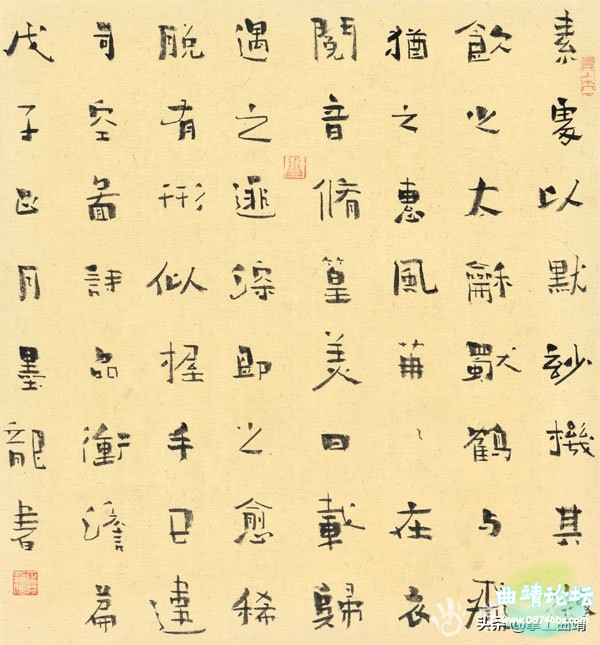 素處以默玅機其微
飲之太龢獨鶴与飛
猶之惠風苒〻在衣
閱音脩篁美曰載歸
遇之匪深即之愈稀
脫有形似握手已違
司空圖詩品衝澹篇
戊子正月墨龍書
曲靖论坛
www.0874bbs.com
头条@掌上曲靖